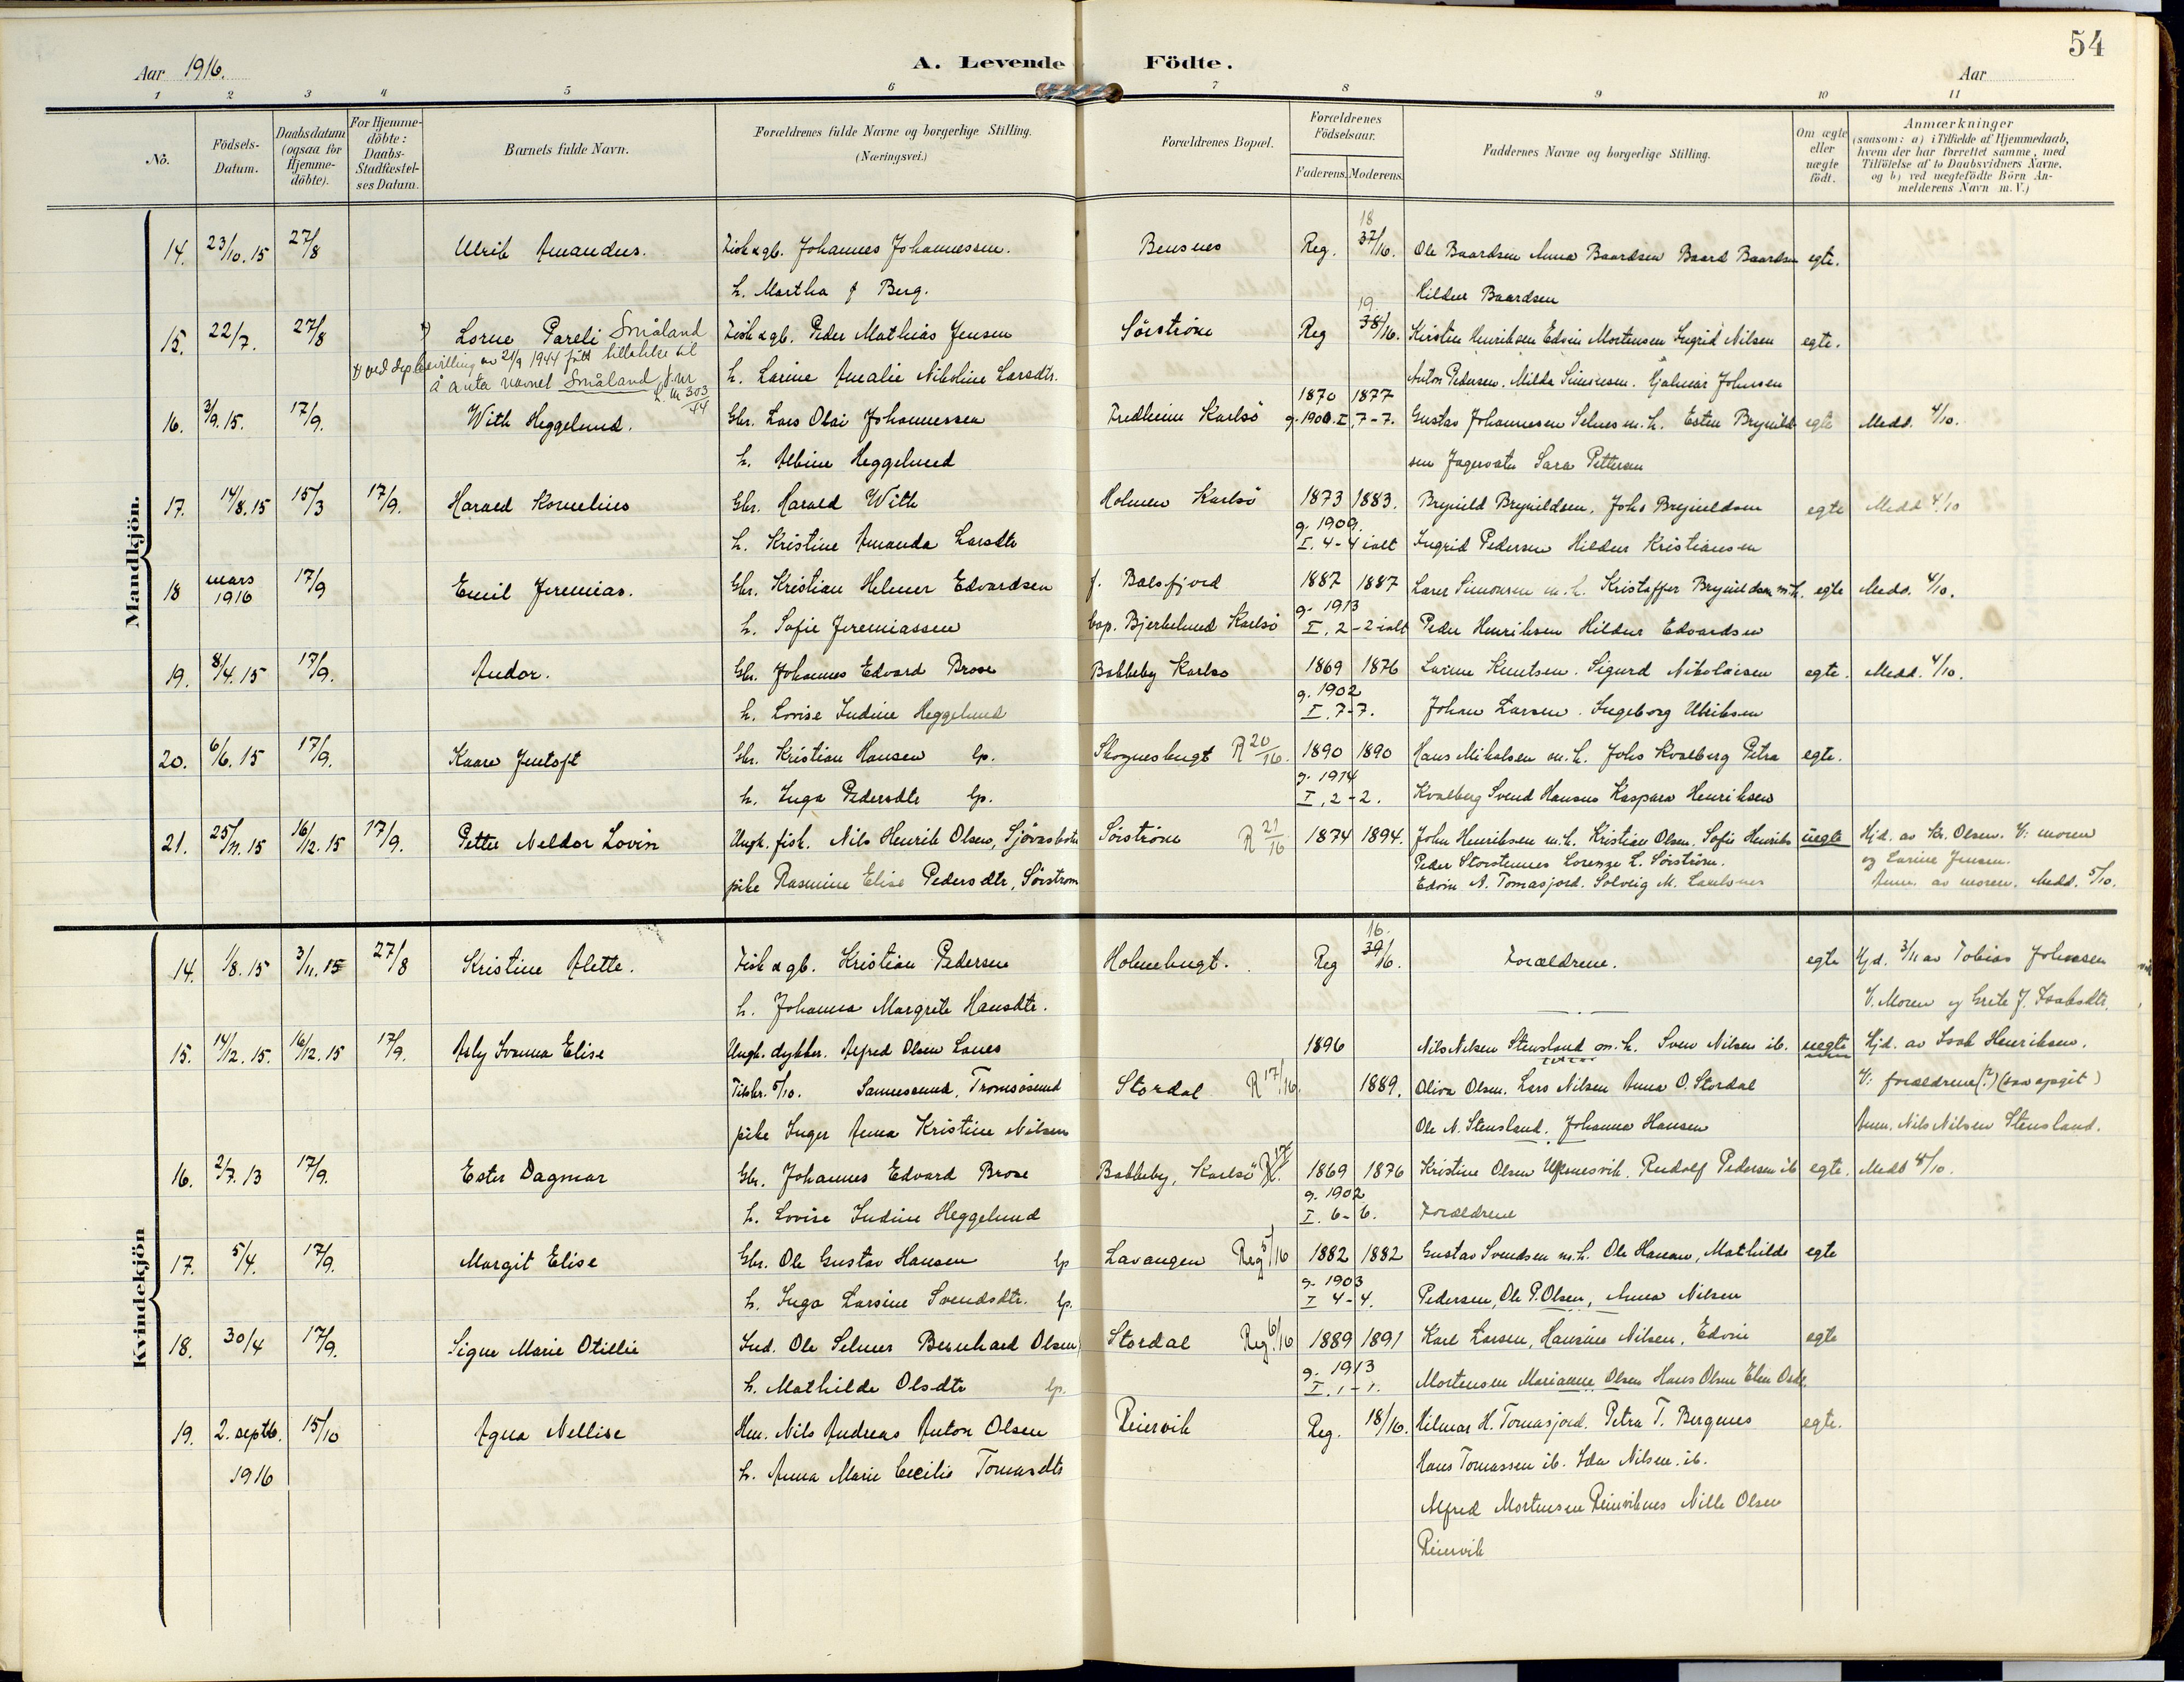 54
Aar 1916.
A. Levende Födte.
Aar
1 2 3 4 5 6 7 8 9 10 11
Nô.
Födsels-Datum.
Daabsdatum (ogsaa for Hjemme-döbte).
For Hjemme-döbte: Daabs-Stadfæstel-ses Datum.
Barnets fulde Navn.
Forældrenes fulde Navne og borgerlige Stilling.
(Næringsvei.)
Forældrenes Bopæl.
Forældrenes Födselsaar.
Faderens. Moderens.
Faddernes Navne og borgerlige Stilling.
Om ægte eller uægte födt.
Anmærkninger
(saasom: a) i Tilfælde af Hjemmedaab,
hvem der har forrettet samme, med
Tilföielse af to Daabsvidners Navne,
og b) ved uægtefödte Börn An-
melderens Navn m. V.)
Mandkjön.
14. 23/10.15 27/8 Ulrik Amandus. Fisk & gb. Johannes Johannessen. Bensnes Reg. 18 37/16. Ole Baardsen Anna Baardsen Baard Baardsen egte.
h. Martha f Berg. Hildur Baardsen
15. 22/7. 27/8 Lorne Pareli Småland Fisk & gb. Peder Mathias Jensen Sörström Reg 19. 38/16. Kirstin Henriksen Edvin Mortensen Ingrid Nilsen egte.
ved dep bevilling av 21/9 1944 fått tillatelse til
å anta navnet Småland j.nr 303/44
h. Larine Amalie Nikoline Larsdtr. Anton Pedersen. Milda Simonsen. Hjalmar Johnsen
16. 3/9.15. 17/9. With Heggelund. Gbr. Lars Olai Johannessen Fredheim Karlsö 1870 1877 g. 1900. I, 7-7. Gustav Johannesen Selnes m. h. Esten Brynild- egte Medd. 4/10.
h. Albine Heggelund sen Jagervatn Sara Pettersen
17. 14/8.15 15/3 17/9. Harald Kornelius Gbr. Harald With Holmen Karlsö 1873 1883. Brynild Brynildsen, Johs Brynildsen egte Medd 4/10
h. Kristine Amanda Larsdtr g. 1909. I. 4-4 ialt Ingrid Pedersen Hildur Kristiansen
18 mars 1916 17/9 Emil Jeremias. Gbr. Kristian Helmer Edvardsen f. Balsfjord 1887 1887 Lars Simonsen m. h. Kristoffer Brynildsen m. h. egte Medd. 4/10.
h. Sofie Jeremiassen bop. Bjerkelund Karlsö g. 1913 I, 2-2 ialt Peder Henriksen Hildur Edvardsen
19. 8/4.15 17/9. Andor. Gbr. Johannes Edvard Brose Bakkeby Karlsö 1869 1876 Larine Knutsen. Sigurd Nikolaisen egte. Medd. 4/10.
h. Lovise Indine Heggelund g. 1902 I. 7-7. Johan Larsen. Ingeborg Ulriksen
20. 6/6.15 17/9. Kaare Jentoft Gbr. Kristian Hansen lp. Skognesbugt R 20/16. 1890 1890 Hans Mikalsen m. h. Johs Kvalberg Petra egte.
h. Inga Pedersdtr lp. g. 1914 I, 2-2. Kvalberg Svend Hansen Kaspara Henriksen
21. 25/11.15 16/12.15 17/9. Petter Neldor Lovin Ungk. fisk. Nils Henrik Olsen, Sjövasbotn Sörström R 21/16 1874 1894. John Henriksen m. h. Kristian Olsen. Sofie Henriks uegte Hjd. av Kr. Olsen. V: moren
Peder Storstennes Lorenze L. Sörström. og Larine Jensen.
pike Rasmine Elise Pedersdtr, Sörström Edvin A. Tomasjord. Solveig M. Anm. av moren. Medd. 5/10.
Kvindekjön
14. 1/8.15 3/11.15 27/8 Kristine Alette. Fisk & gb. Kristian Pedersen Holmebugt. Reg 16. 39/16. Forældrene. egte Hjd. 3/11 av Tobias Johnsen
h. Johanna Margrete Hansdtr. V. Moren og Grete J. Isaksdtr.
15. 14/12.15. 16/12.15 17/9. Asly Ivanna Elise Ungk. dykker. Alfred Olsen Lanes 1896 Nils Nilsen Stensland m. h. Sven Nilsen ib. uegte Hjd. av Isak Henriksen.
Tilskr. 5/10. Sannesund, Tromsösund Stordal R 17/16. 1889. Oliva Olsen. Lars Nilsen Anna O. Stordal V: forældrene(?) (saa opgit)
pike Inger Anna Kristine Nilsen Ole N. Stensland. Johanna Hansen Anm. Nils Nilsen Stensland.
16. 2/7.13 17/9. Ester Dagmar Gbr. Johannes Edvard Brose Bakkeby, Karlsö 1869 1876 Kristine Olsen Ulfsnesvik. Rudolf Pedersen ib egte. Medd 4/10.
h. Lovise Indine Heggelund g. 1902 I. 6-6. Forældrene
17. 5/4. 17/9. Margit Elise Gbr. Ole Gustav Hansen lp Lavangen Reg 5/16 1882 1882 Gustav Svendsen m. h. Ole Hansen, Mathilde egte
h. Inga Larsine Svendsdtr. lp. g. 1903 I 4-4. Pedersen, Ole P. Olsen, Anna Nilsen
18. 30/4 17/9. Signe Marie Otillie Ind. Ole Selmer Bernhard Olsen Stordal Reg. 6/16 1889 1891 Karl Larsen, Hansine Nilsen, Edvin egte
h. Mathilde Olsdtr lp. g. 1913 I. 1-1. Mortensen Marianne Olsen Hans Olsen Elen
19. 2. septb. 15/10 Agna Nellise Hm. Nils Andreas Anton Olsen Reiervik Reg. 18/16. Hilmar H. Tomasjord. Petra T. Bergenes egte.
1916 h. Anna Marie Cecilie Tomasdtr Hans Tomassen ib. Ida Nilsen. ib.
Alfred Mortensen Reiervik Nille Olsen
Reiervik